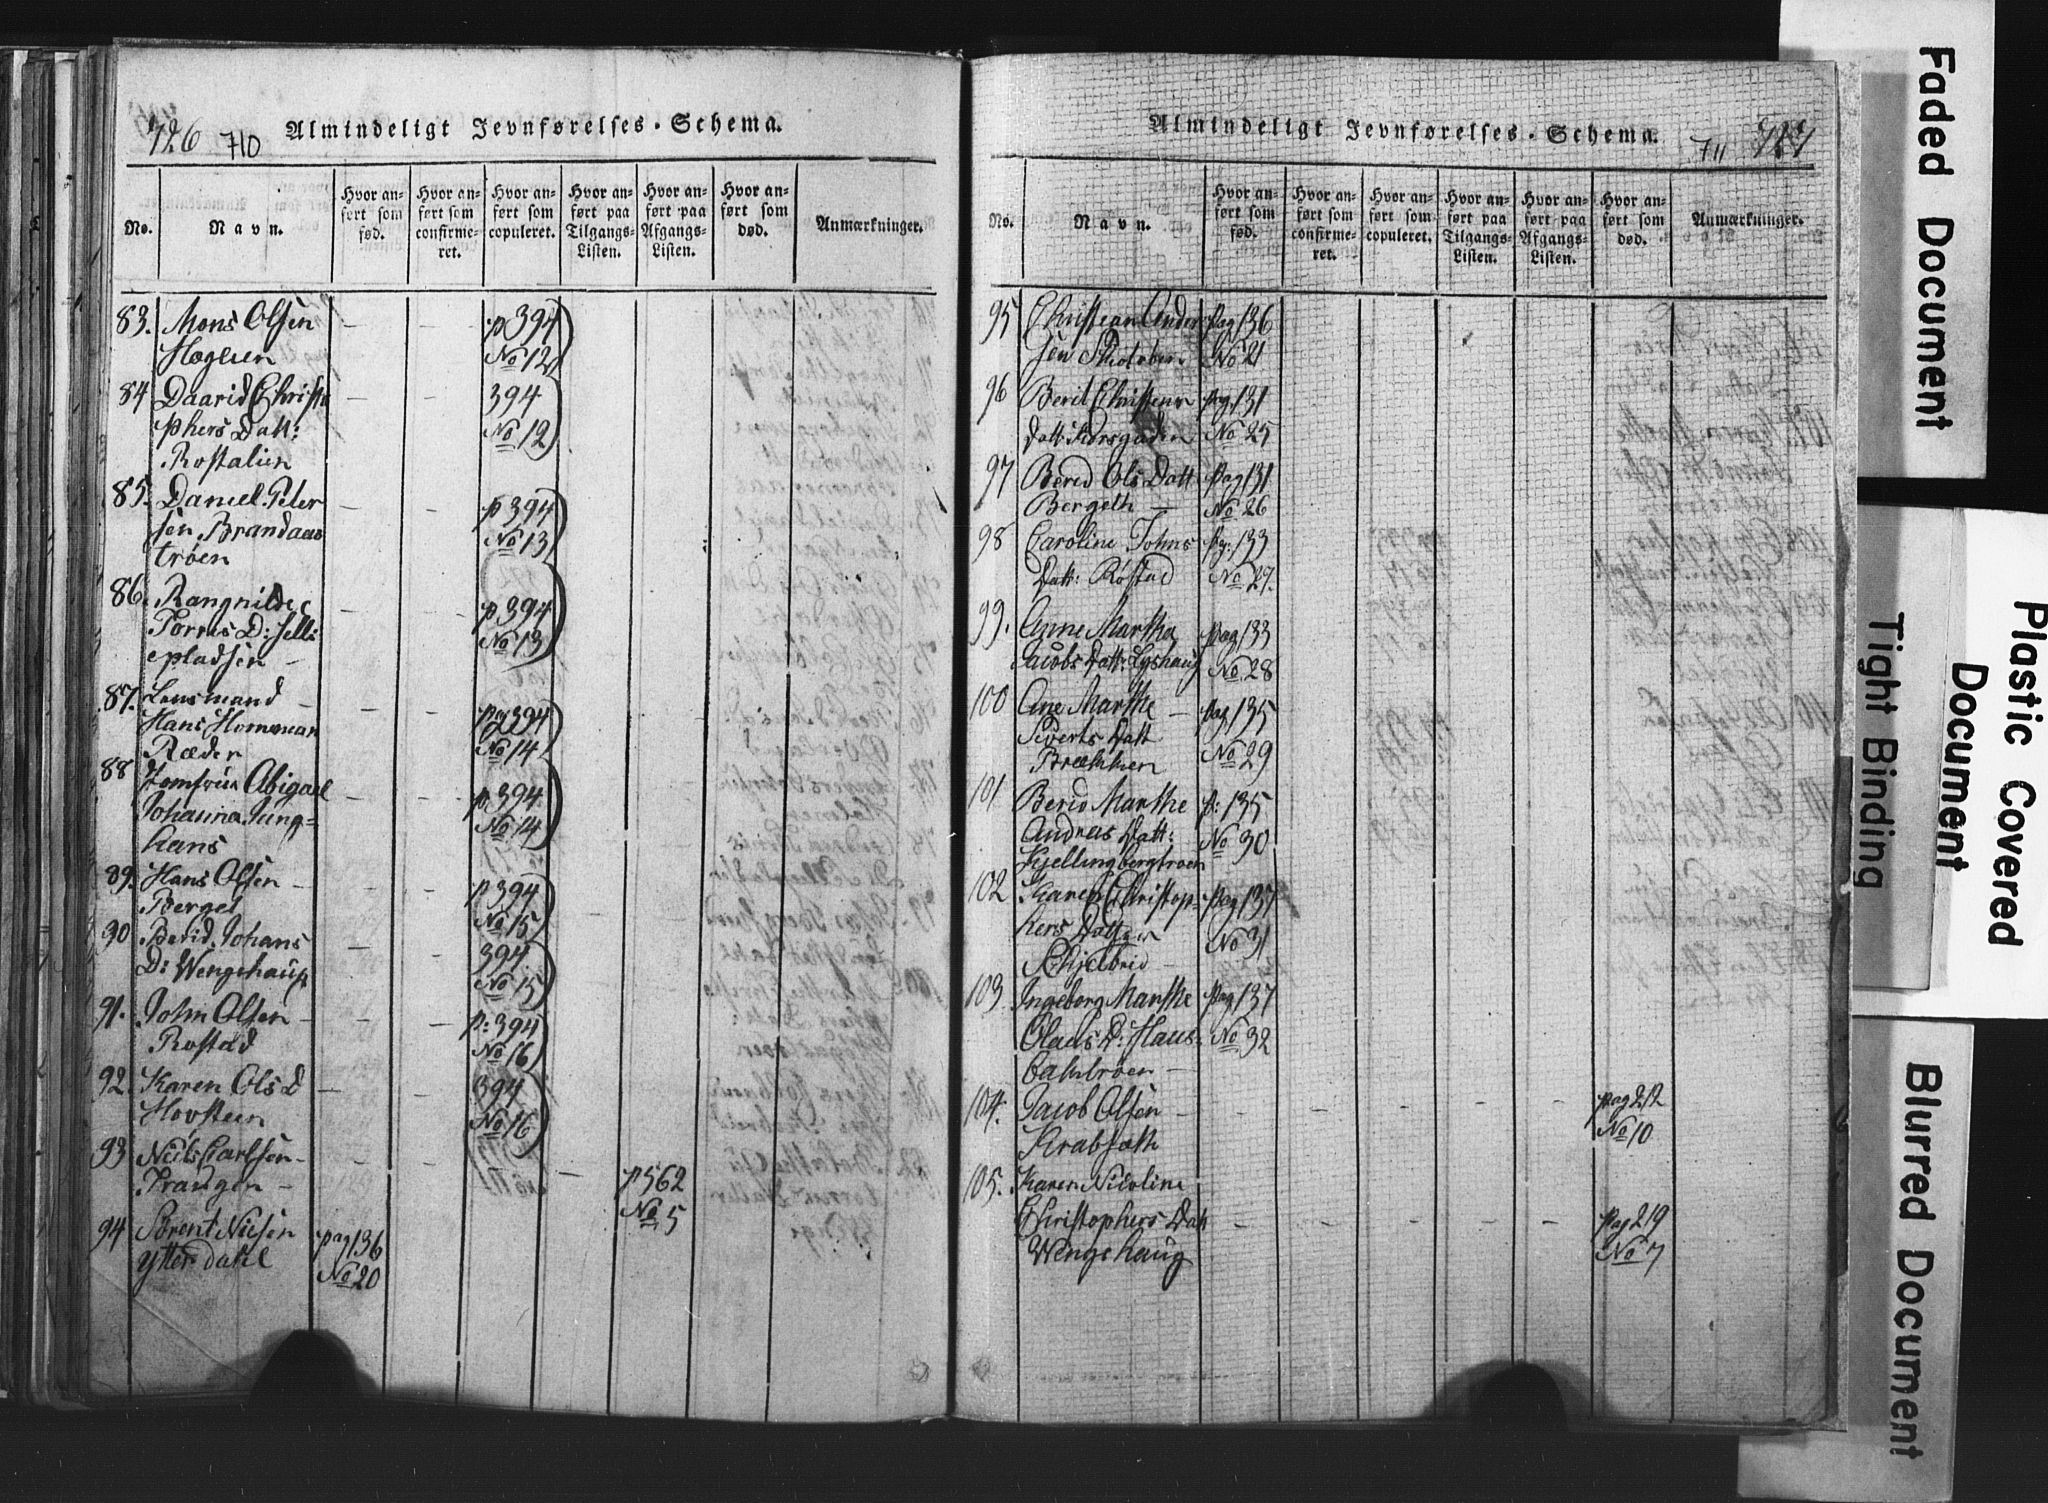 726 710 Almindeligt Jevnførelses-Schema.
No. Navn. Hvor anført som fød. Hvor anført som confirmeret. Hvor anført som copuleret. Hvor anført paa Tilgangs-Listen. Hvor anført paa Afgangs-Listen. Hvor anført som død. Anmærkninger.
83. Mons Olsen — — p 394
Hoglien No 12
84 Daarid Christo — — 394
phers Datt: No 12
Rostalien
85. Daniel Peter — — p 394
sen Brandaas No 13
trøen
86. Rangnilde — — p 394
Torres D: Selli No 13
epladsen —
87. Lensmand — — — pag 394
Hans Hornman No 14
Ræder
88 Jomfrue Abigael — — p 394
Johanna Jung= No 14
hans
89. Hans Olsen — — — p 394
Bergel No 15
90 Berid Johans — — 394
D: Wengshaug No 15
91. John Olsen — — — p: 394
Rostad No 16
92. Karen Ols D — — 394
Hovsteen No 16
93 Neils Carlsen —
Prangen — — — — — p 562
No 5
94 Sørent Nielsen pag 136
Ytterdahl No 20
Almindeligt Jevnførelses-Schema. 711 727
No. Navn. Hvor anført som fød. Hvor anført som confirmeret. Hvor anført som copuleret. Hvor anført paa Tilgangs-Listen. Hvor anført paa Afgangs-Listen. Hvor anført som død. Anmærkninger.
95 Christian Ander pag 136
sen No 21
96 Berit Christens pag 131
datt: Korsgaden No 25
97 Bered Ols Datt pag 131
Bergeth — No 26
98 Caroline Johns pg: 133
Datt: Røstad No 27.
99. Anne Martha pag 133
Jacobs Datt: Lyshaug No 28
100 Ane Marthe — pag 135
Siverts Datt No 29
Brækken
101 Berid Marthe p: 135
Andreas Datt: No 30
Kjellingbergtroen
102 Karen Christop= pag 137
hers Datter No 31
Schjelbrid —
103 Ingeborg Marthe pag 137
Olaus D: Haus= No 32
baktrøen —
104. Jacob Olsen — — — — — — pag 212
Krabsæth No 10
105. Karen Nicoline
Christophers Datt — — — — — pag 219
Wengshaug No 7
Faded Document
Tight Binding
Plastic Covered
Document
Blurred Document